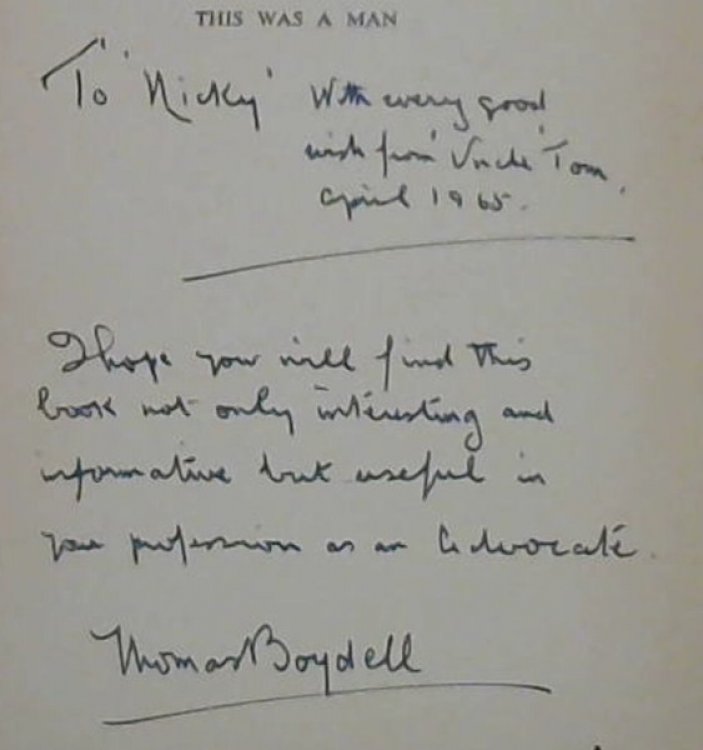 THIS WAS A MAN
To 'Nicky' With every good
wish from 'Uncle' Tom.
April 1965.
I hope you will find this
book not only interesting and
informative but useful in
your profession as an Advocate
Thomas Boydell